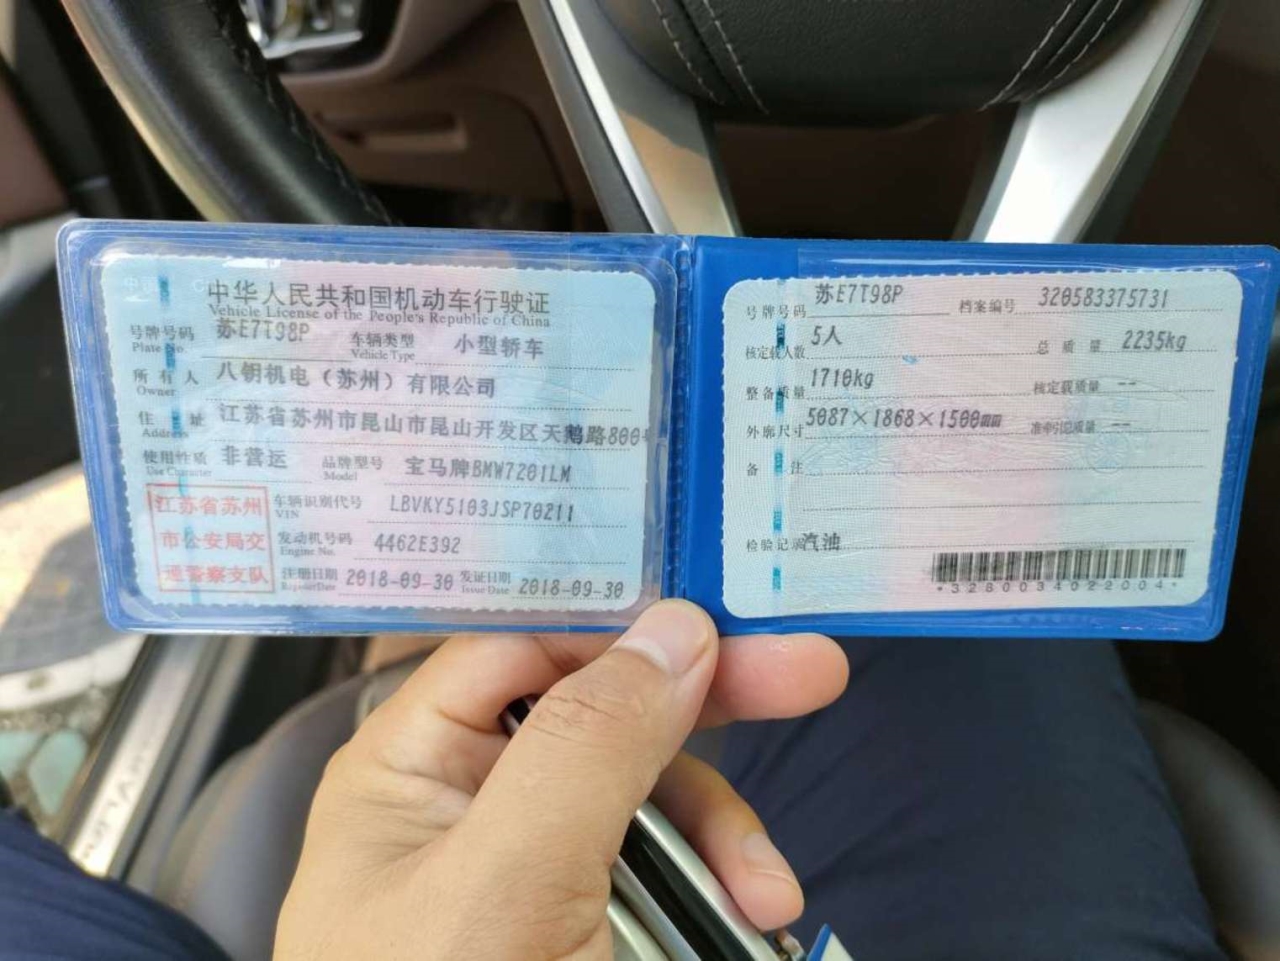 中华人民共和国机动车行驶证
Vehicle License of the People's Republic of China
号牌号码 苏E7T98P 车辆类型 小型轿车
Plate No. Vehicle Type
所有人 八钥机电（苏州）有限公司
Owner
住址 江苏省苏州市昆山市昆山开发区天鹅路800号
Address
使用性质 非营运 品牌型号 宝马牌BMW7201LM
Use Character Model
江苏省苏州
市公安局交
通警察支队
车辆识别代号 LBVKY5103JSP70211
VIN
发动机号码 4462E392
Engine No.
注册日期 2018-09-30 发证日期 2018-09-30
Register Date Issue Date
号牌号码 苏E7T98P 档案编号 320583375731
核定载人数 5人 总质量 2235kg
整备质量 1710kg 核定载质量 --
外廓尺寸 5087×1868×1500mm 准牵引总质量 --
备注
检验记录 汽油
*3280034022004*